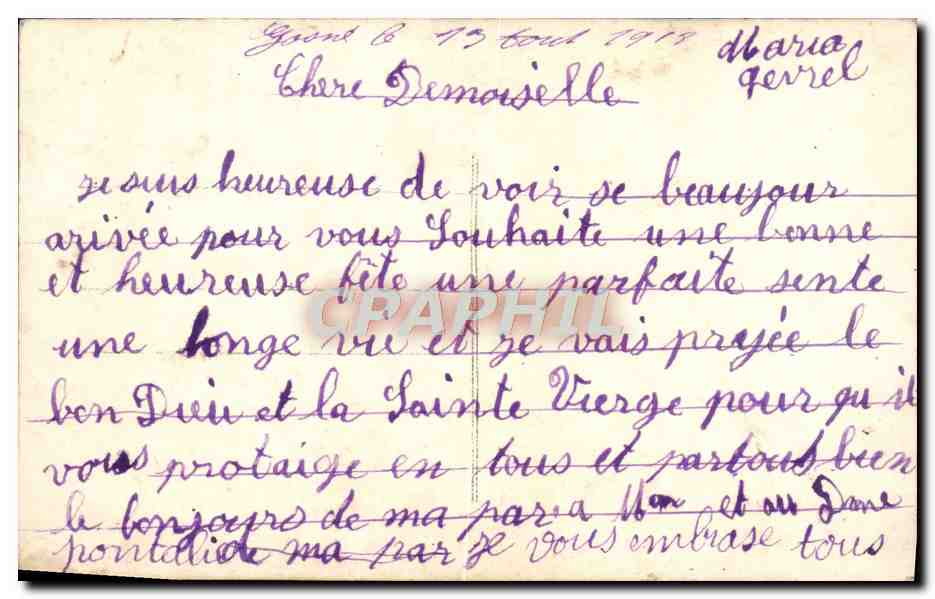 le 13 Aout 1918
Maria
Gevrel
Chere Demoiselle
je suis heureuse de voir se beaujour
arivée pour vous Souhaite une bonne
et heureuse fête une parfaite sente
une longe vie et je vais prejée le
bon Dieu et la Sainte Vierge pour qu il
vous protaige en tous et partous bien
le bonjours de ma par a Mon et au Dame
de ma par je vous embrase tous
CPAPHIL